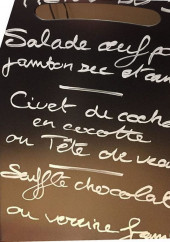 Salade œuf po
jambon sec et
Civet de coche
en cocotte
ou Tête de veau
Soufflé chocolat
ou verrine